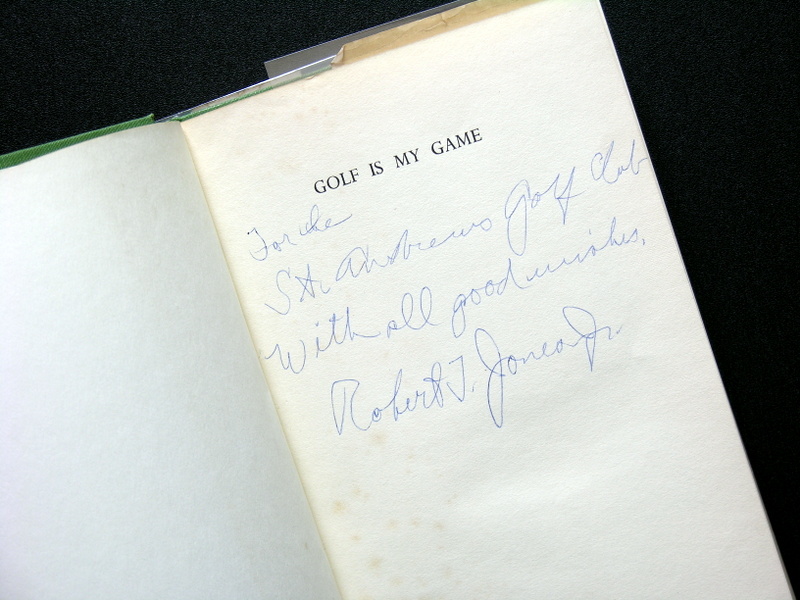 GOLF IS MY GAME
For the
St. Andrews Golf Club
With all good wishes,
Robert T. Jones Jr.